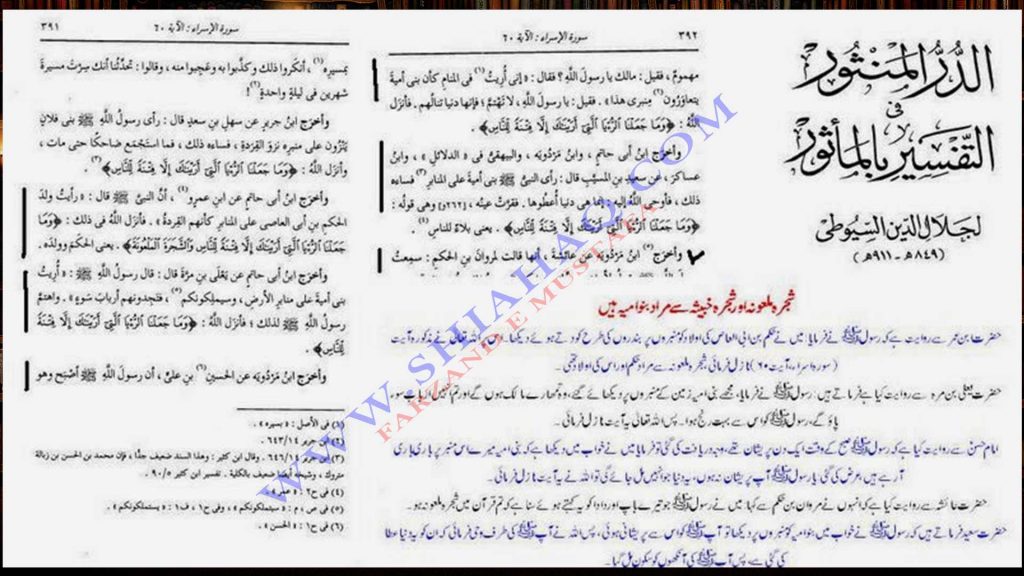 سورة الإسراء : الآية ٦٠
٣٩١
بمسيره(١) ، أنكروا ذلك وكذَّبوا به وعَجِبوا منه ، وقالوا : تحدِّثُنا أنك سِرْتَ مسيرةَ
شهرين فى ليلةٍ واحدةٍ !
وأخرَج ابنُ جريرٍ عن سهلِ بنِ سعدٍ قال : رأى رسولُ اللَّهِ ﷺ بنى فلانٍ
يَنْزُون على منبرِه نَزْوَ القِرَدةِ ، فساءه ذلك ، فما استَجْمَع ضاحكًا حتى مات ،
وأنزَل اللَّهُ : ﴿وَمَا جَعَلْنَا الرُّءْيَا الَّتِي أَرَيْنَاكَ إِلَّا فِتْنَةً لِّلنَّاسِ﴾
وأخرَج ابنُ أبى حاتمٍ عن ابنِ عمرٍو ، أنَّ النبىَّ ﷺ قال : « رأيتُ ولدَ
الحكمِ بنِ أبى العاصى على المنابرِ كأنهم القِرَدةُ » . فأنزَل اللَّهُ فى ذلك : ﴿وَمَا
جَعَلْنَا الرُّءْيَا الَّتِي أَرَيْنَاكَ إِلَّا فِتْنَةً لِّلنَّاسِ وَالشَّجَرَةَ الْمَلْعُونَةَ﴾ . يعنى الحكمَ وولدَه .
وأخرَج ابنُ أبى حاتمٍ عن يَعْلَى بنِ مُرَّةَ قال : قال رسولُ اللَّهِ ﷺ : « أُرِيتُ
بنى أميةَ على منابرِ الأرضِ ، وسيملِكونكم ، فتجِدونهم أربابَ سُوءٍ » . واهتمَّ
رسولُ اللَّهِ ﷺ لذلك ؛ فأنزَل اللَّهُ : ﴿وَمَا جَعَلْنَا الرُّءْيَا الَّتِي أَرَيْنَاكَ إِلَّا فِتْنَةً
لِّلنَّاسِ﴾ .
وأخرَج ابنُ مَرْدُويَه عن الحسينِ(٦) بنِ علىٍّ ، أن رسولَ اللَّهِ ﷺ أصبَح وهو
(١) فى الأصل : « بسيره » .
(٢) ابن جرير ١٤/٦٤٣
(٣) ابن جرير ١٤/٦٤٦. وقال ابن كثير : وهذا السند ضعيف جدًّا ، فإن محمد بن الحسن بن زبالة
متروك ، وشيخه أيضا ضعيف بالكلية . تفسير ابن كثير ٥/٩٠
(٤) فى ح ١ : « عمر » .
(٥) فى ص ، م : « سيتملكونكم » ، وفى ح ١ ، ف ١ : « يستملكونكم » .
(٦) فى ح ١ : « الحسن » .
سورة الإسراء : الآية ٦٠
٣٩٢
مهمومٌ ، فقيل : مالك يا رسولَ اللَّهِ ؟ فقال : « إنى أُرِيتُ فى المنامِ كأن بنى أميةَ
يتعاوَرُون منبرى هذا » . فقيل : يا رسولَ اللَّهِ ، لا تَهْتَمَّ ؛ فإنها دنيا تنالُهم . فأنزَل
اللَّهُ : ﴿وَمَا جَعَلْنَا الرُّءْيَا الَّتِي أَرَيْنَاكَ إِلَّا فِتْنَةً لِّلنَّاسِ﴾ .
وأخرَج ابنُ أبى حاتمٍ ، وابنُ مَرْدُويَه ، والبيهقىُّ فى « الدلائلِ » ، وابنُ
عساكرَ ، عن سعيدِ بنِ المسيَّبِ قال : رأى النبىُّ ﷺ بنى أميةَ على المنابرِ فساءه
ذلك ، فأوحَى اللَّهُ إليه : إنما هى دنيا أُعطُوها . فقرَّت عينُه ، [٢٦٢و] وهى قولُه :
﴿وَمَا جَعَلْنَا الرُّءْيَا الَّتِي أَرَيْنَاكَ إِلَّا فِتْنَةً لِّلنَّاسِ﴾ . يعنى بلاءً للناسِ .
وأخرَج ابنُ مَرْدُويَه عن عائشةَ ، أنها قالت لمروانَ بنِ الحكمِ : سمِعتُ
الدُّرُّ المَنْثُور
فى
التَّفْسِيرِ بِالمَأْثُور
لجلال الدين السيوطى
(٨٤٩هـ - ٩١١هـ)
شجرہ ملعونہ اور شجرہ خبیثہ سے مراد بنو امیہ ہیں
حضرت ابن عمر سے روایت ہے کہ رسول ﷺ نے فرمایا: میں نے حکم بن ابی العاص کی اولاد کو منبروں پر بندروں کی طرح کودتے ہوئے دیکھا۔ اس پر اللہ تعالیٰ نے مذکورہ آیت
(سورہ اسراء، آیت ۶۰) نازل فرمائی، شجرہ ملعونہ سے مراد حکم اور اس کی اولاد تھی۔
حضرت یعلی بن مرہ سے روایت کیا ہے فرماتے ہیں: رسول ﷺ نے فرمایا، مجھے بنی امیہ زمین کے منبروں پر دکھائے گئے، وہ تمہارے مالک ہوں گے اور تم انہیں ارباب سوء
پاؤ گے، رسول ﷺ کو اس سے بہت رنج ہوا۔ پس اللہ تعالیٰ یہ آیت نازل فرمائی۔
امام حسینؑ سے روایت کیا ہے کہ رسول ﷺ صبح کے وقت ایک دن پریشان تھے، وجہ دریافت کی گئی تو فرمایا میں نے خواب میں دیکھا ہے کہ بنی امیہ میرے اس منبر پر باری باری
آ رہے ہیں، عرض کی گئی یا رسول ﷺ آپ پریشان نہ ہوں، یہ دنیا جو انہیں مل جائے گی تو اللہ نے یہ آیت نازل فرمائی۔
حضرت عائشہ سے روایت کیا ہے کہ انہوں نے مروان بن حکم سے کہا، میں نے رسول ﷺ جو تیرے باپ اور دادا کو یہ کہتے ہوئے سنا ہے کہ تم قرآن میں شجرہ ملعونہ ہو۔
حضرت سعید فرماتے ہیں کہ رسول ﷺ نے خواب میں، بنو امیہ کو منبروں پر دیکھا تو آپ ﷺ کو اس سے پریشانی ہوئی، پس اللہ نے آپ ﷺ کی طرف وحی فرمائی کہ ان کو یہ دنیا عطا
کی گئی ہے، پس آپ کی آنکھوں کو سکون مل گیا۔
WWW.SHIAHAQ.COM
FARZAND E MUSTAFA